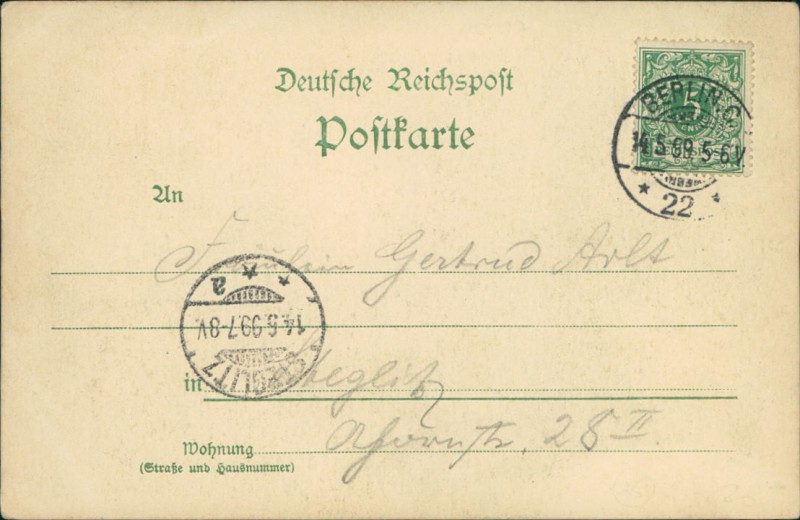 Deutsche Reichspost
Postkarte
BERLIN. C
14.5.99.5-6V.
* 22 *
5
An
Fräulein Gertrud Arlt
a
14.5.99.7-8V.
STEGLITZ
in Steglitz
Wohnung Ahornstr. 28 II.
(Straße und Hausnummer)